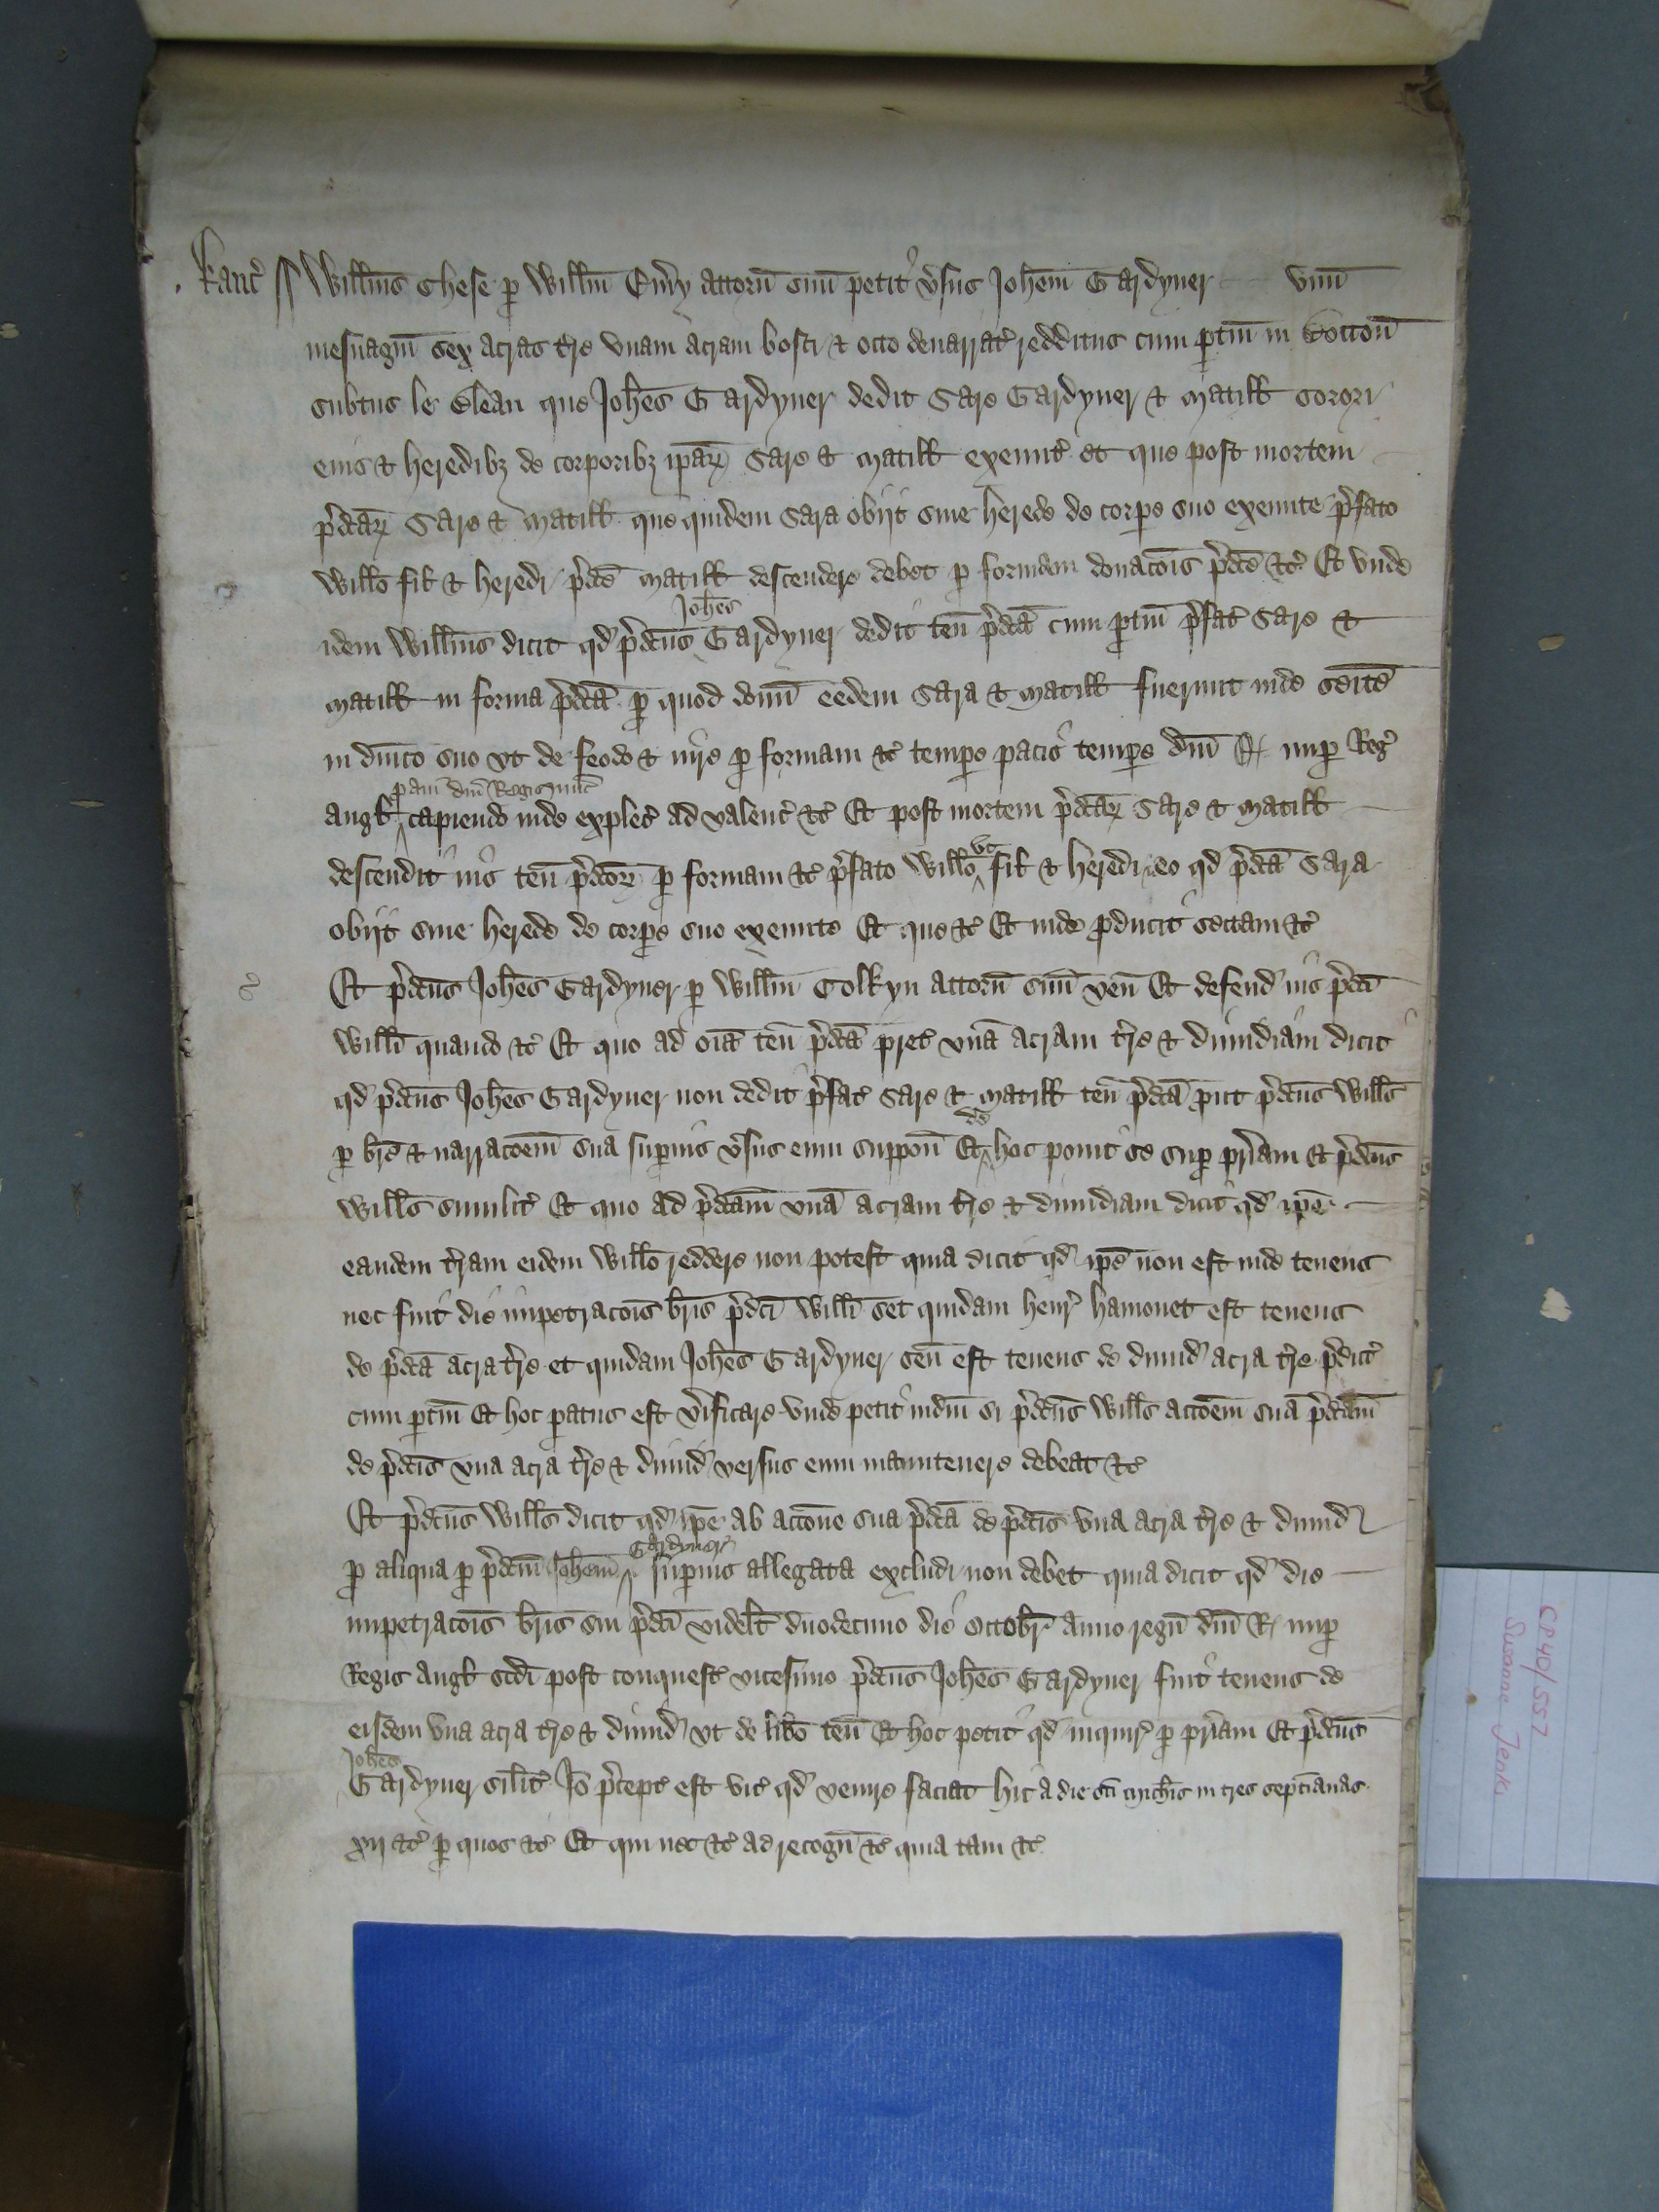 Kanc̃ Willm̃s Chese p̱ Willm̃ Em̃y attorñ suũ petit ṽsus Joheм̃ Gardyner vnũ
mesuagiũ sex acras tr̃e vnam acram bosci & octo denarrat̃ redditus cum p̱tiñ in Boctoñ
subtus le Blean que Joh̃es Gardyner dedit Sare Gardyner & Matill̃ sorori
eius & heredibȝ de corporibȝ ip̃aꝝ Sare & Matill̃ exeunt̃ et que post mortem
p̃dc̃aꝝ Sare & Matill̃ que quidem Sara obijt sine herede de corp̱e suo exeunte p̃fato
Will̃o fil̃ & heredi p̃dc̃e Matill̃ descendere debet p̱ formam donac̃ois p̃dc̃e &c̃ Et vnde
idem Willm̃s dicit qd̃ p̃dc̃us Joh̃es Gardyner dedit teñ p̃dc̃a cum p̱tiñ p̃fat̃ Sare &
Matill̃ in forma p̃dc̃a p̱ quod donũ eedem Sara & Matill̃ fuerunt inde sei͠te
in dñico suo vt de feodo & iure p̱ formam &c̃ temp̱e pacis temp̱e dñi R̃ nup̱ Reg̃
Angl̃ p̱ am̃ dñi Regis nunc̃ capiendo inde explec̃ ad valenc̃ &c̃ Et post mortem p̃dc̃aꝝ Sare & Matill̃
descendit ius teñ p̃dc̃oꝝ p̱ formam &c̃ p̃fato Will̃o vt fil̃ & heredi eo qd̃ p̃dc̃a Sara
obijt sine herede de corp̱e suo exeunte Et que &c̃ Et inde p̱ducit sectam &c̃
Et p̃dc̃us Joh̃es Gardyner p̱ Willm̃ Colkyn attorñ suũ veñ Et defend̃ ius p̃dc̃i
Will̃i quando &c̃ Et quo ad om̃ia teñ p̃dc̃a pret̃ vnã acram tr̃e & dimidiam dicit
qd̃ p̃dc̃us Joh̃es Gardyner non dedit p̃fat̃ Sare & Matill̃ teñ p̃dc̃a p̱ut p̃dc̃us Will̃s
p̱ br̃e & narrac̃oem̃ suã sup̱ius ṽsus eum suppoñ Et de hoc ponit se sup̱ pr̃iam Et p̃dc̃us
Will̃s similit̃ Et quo ad p̃dc̃am̃ vnã acram tr̃e & dimidiam dicit qd̃ ip̃e
eandem tr̃am eidem Will̃o reddere non potest quia dicit qd̃ ip̃e non est inde tenens
nec fuit die impetrac̃ois br̃is p̃dc̃i Will̃i set quidam Henr̃ Hamonet est tenens
de p̃dc̃a acra tr̃e et quidam Joh̃es Gardyner señ est tenens de dimid̃ acra tr̃e p̃dict̃
cum p̱tiñ Et hoc p̱atus est ṽificare vnde petit iudm̃ si p̃dc̃us Will̃s acc̃oem̃ suã p̃dc̃am̃
de p̃dc̃is vna acra tr̃e & dimid̃ versus eum manutenere debeat &c̃
Et p̃dc̃us Will̃s dicit qd̃ ip̃e ab acc̃one sua p̃dc̃a de p̃dc̃is vna acra tr̃e & dimid̃
p̱ aliqua p̱ p̃dc̃m̃ Joh̃em Gardyner sup̱ius allegata excludi non debet quia dicit qd̃ die
impetrac̃ois br̃is sui p̃dc̃i videlt̃ duodecimo die Octobr̃ anno regñ dñi R̃ nup̱
Regis Angl̃ sc̃di post conquest̃ vicesimo p̃dc̃us Joh̃es Gardyner fuit tenens de
eisdem vna acra tr̃e & dimid̃ vt de lib̃o teñ Et hoc petit qd̃ inquir̃ p̱ pr̃iam Et p̃dc̃us
Joh̃es Gardyner silĩt̃ Iõ p̃cept̃ est vic̃ qd̃ venire faciat hic a die sc̃i Mich̃is in tres septĩanas
xij &c̃ p̱ quos &c̃ Et qui nec &c̃ ad recogñ &c̃ quia tam &c̃
CP40/557
Susanne Jenks